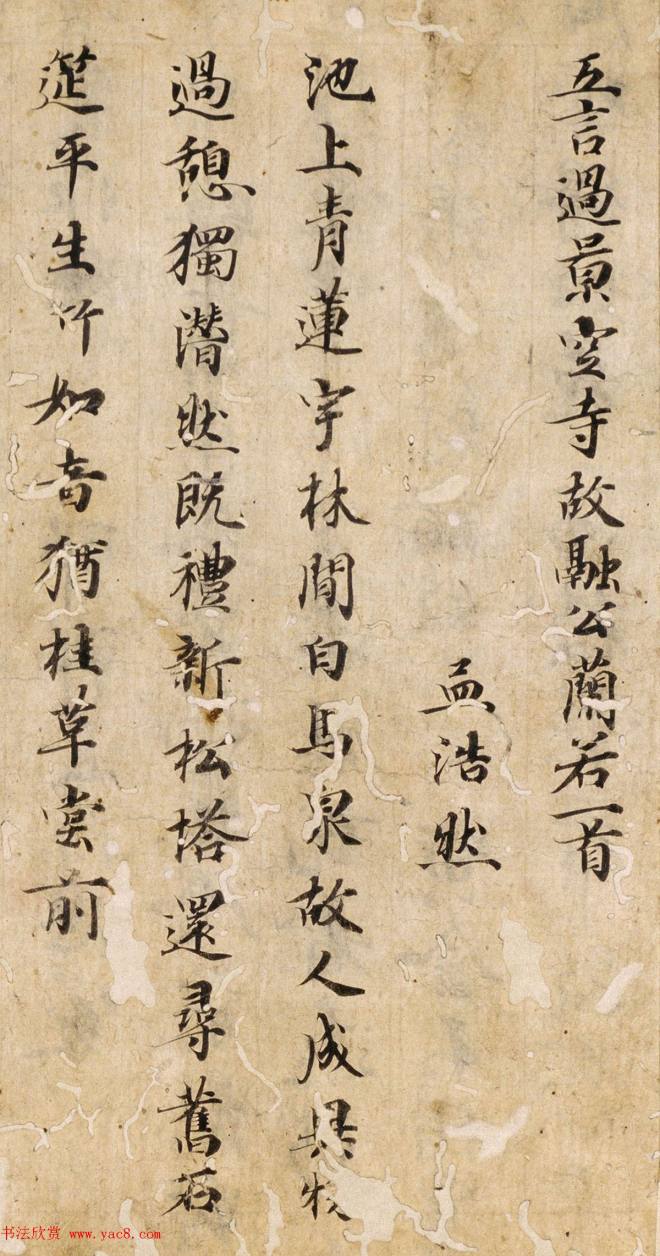 五言過景空寺故融公蘭若一首
孟浩然
池上青蓮宇林間白馬泉故人成異物
過憩獨潸然既禮新松塔還尋舊石
筵平生竹如意猶挂草堂前
书法欣赏 www.yac8.com